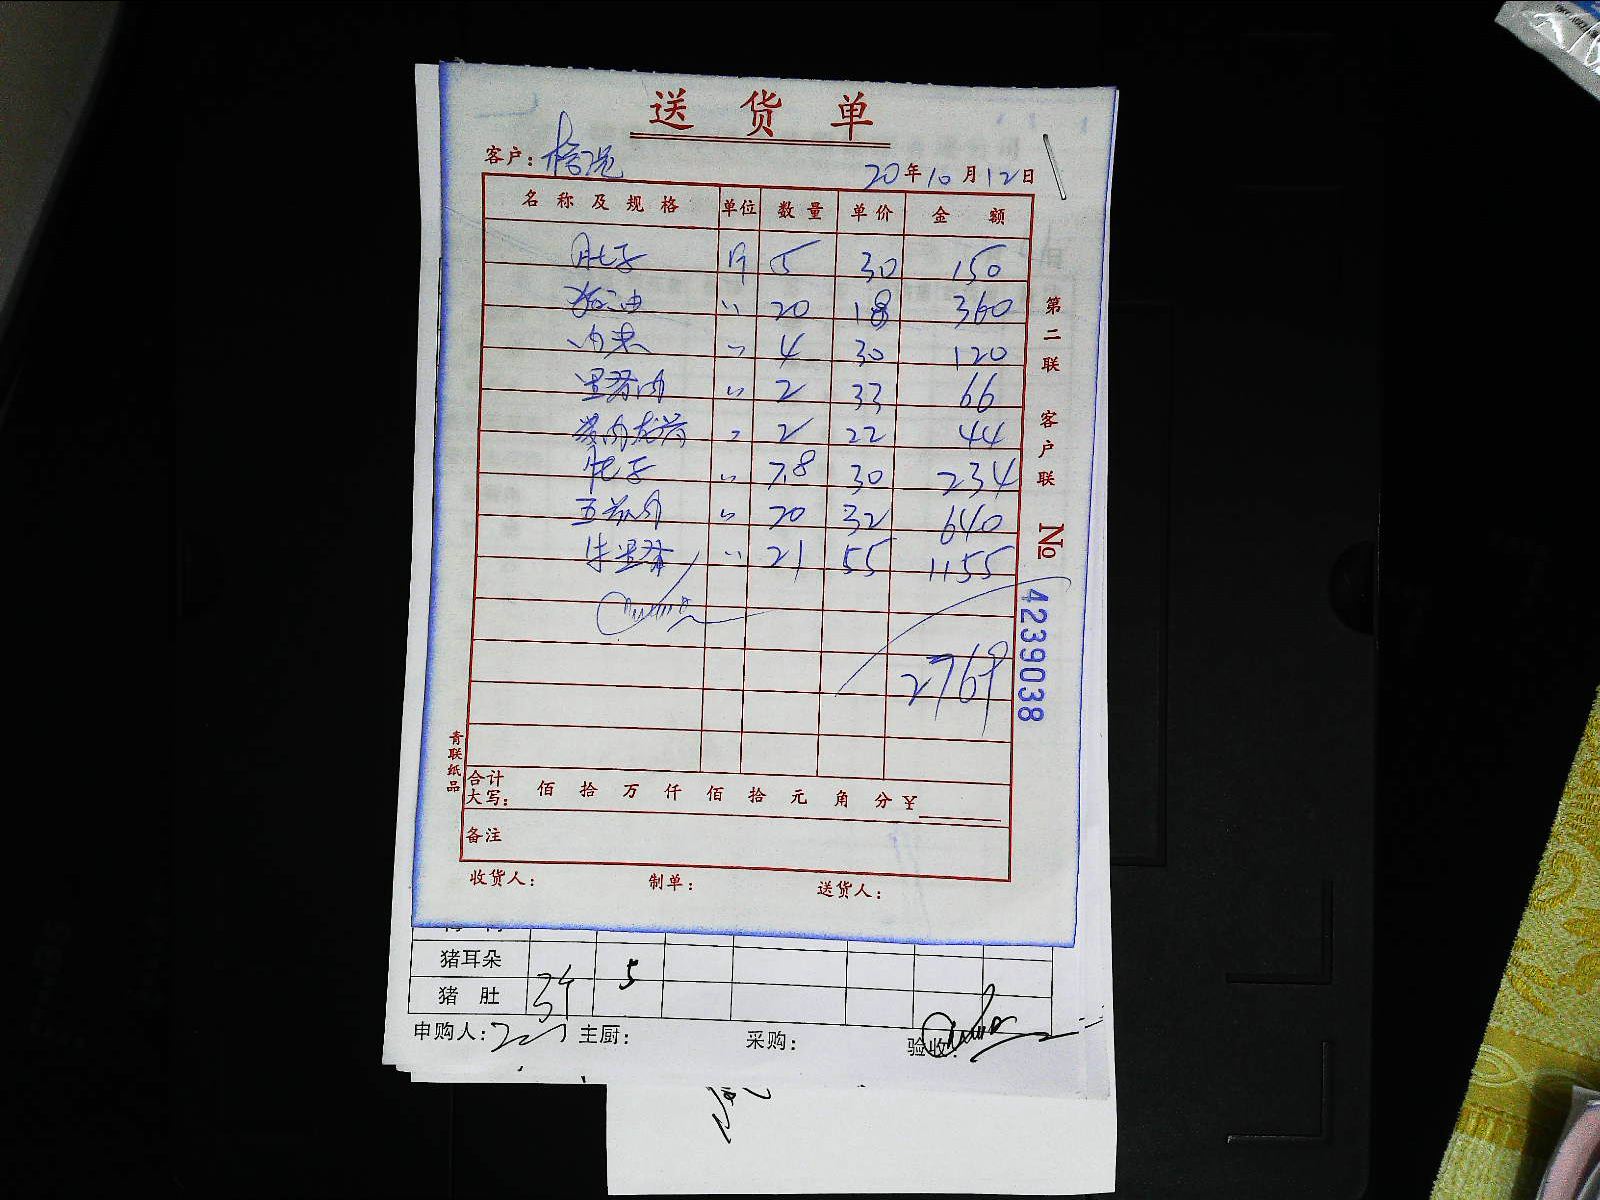 送货单
客户：
20年10月12日
名称及规格 单位 数量 单价 金额
肚子 斤 5 30 150
猪油 〃 20 18 360
肉末 〃 4 30 120
里脊肉 〃 2 33 66
肉 〃 2 22 44
肚子 〃 7.8 30 234
五花肉 〃 20 32 640
牛里脊 〃 21 55 1155
2769
合计
大写： 佰 拾 万 仟 佰 拾 元 角 分 ￥
备注
收货人： 制单： 送货人：
第二联 客户联 №4239038
青联纸品
猪耳朵
猪肚 5
申购人： 主厨： 采购： 验收：